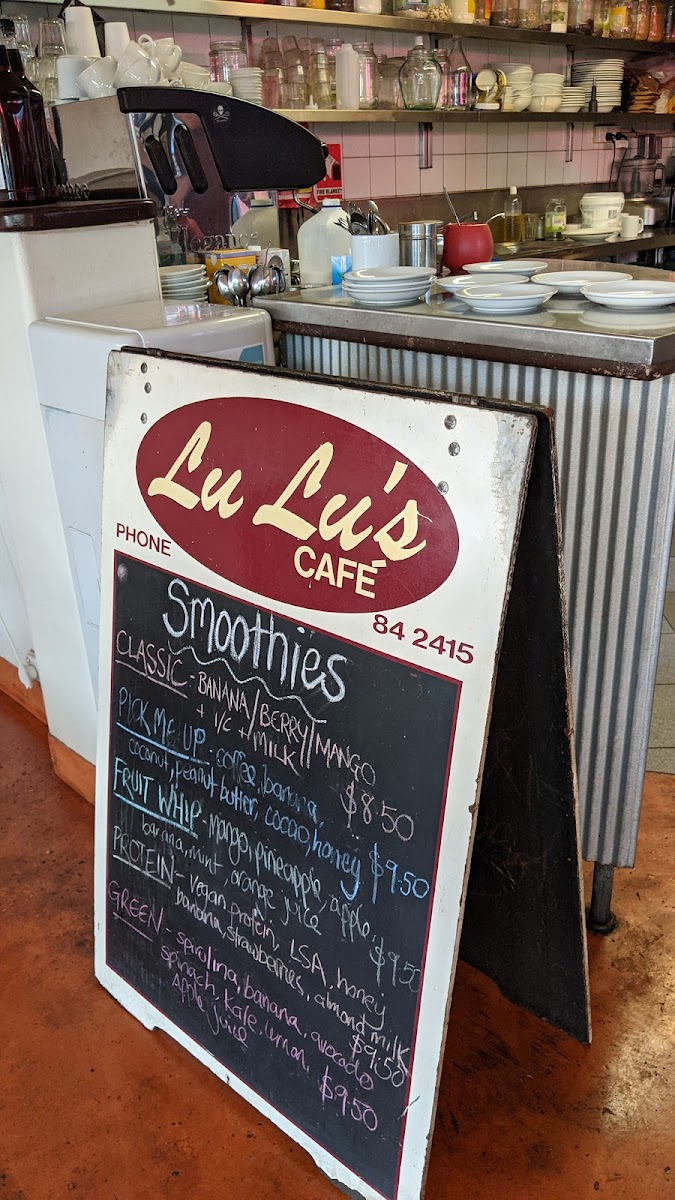 FIRE BLANKET
Lu Lu's
CAFÉ
PHONE
84 2415
Smoothies
CLASSIC - BANANA/BERRY/MANGO
+ I/C + MILK
$8.50
PICK ME UP - coffee, banana,
coconut, peanut butter, cacao, honey $9.50
FRUIT WHIP - mango, pineapple, apple,
banana, mint, orange juice $9.50
PROTEIN - vegan protein, LSA, honey
banana, strawberries, almond milk
$9.50
GREEN - spirulina, banana, avocado
spinach, kale, lemon,
apple juice $9.50